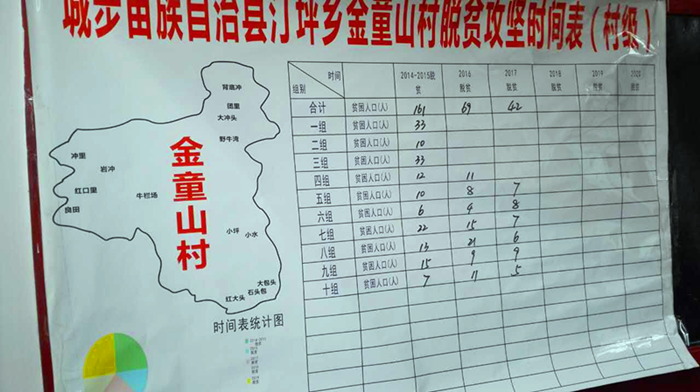 城步苗族自治县汀坪乡金童山村脱贫攻坚时间表（村级）
时间
组别
2014-2015脱贫
2016脱贫
2017脱贫
2018脱贫
2019脱贫
2020脱贫
合计 贫困人口(人) 161 69 42
一组 贫困人口(人) 33
二组 贫困人口(人) 10
三组 贫困人口(人) 33
四组 贫困人口(人) 12 11
五组 贫困人口(人) 10 8 7
六组 贫困人口(人) 6 4 8
七组 贫困人口(人) 22 15 7
八组 贫困人口(人) 13 21 6
九组 贫困人口(人) 15 9 9
十组 贫困人口(人) 7 11 5
背底冲
团里
大冲头
野牛湾
冲里
岩冲
红口里
良田
牛栏场
金童山村
小坪
小水
大包头
石头包
红大头
时间表统计图